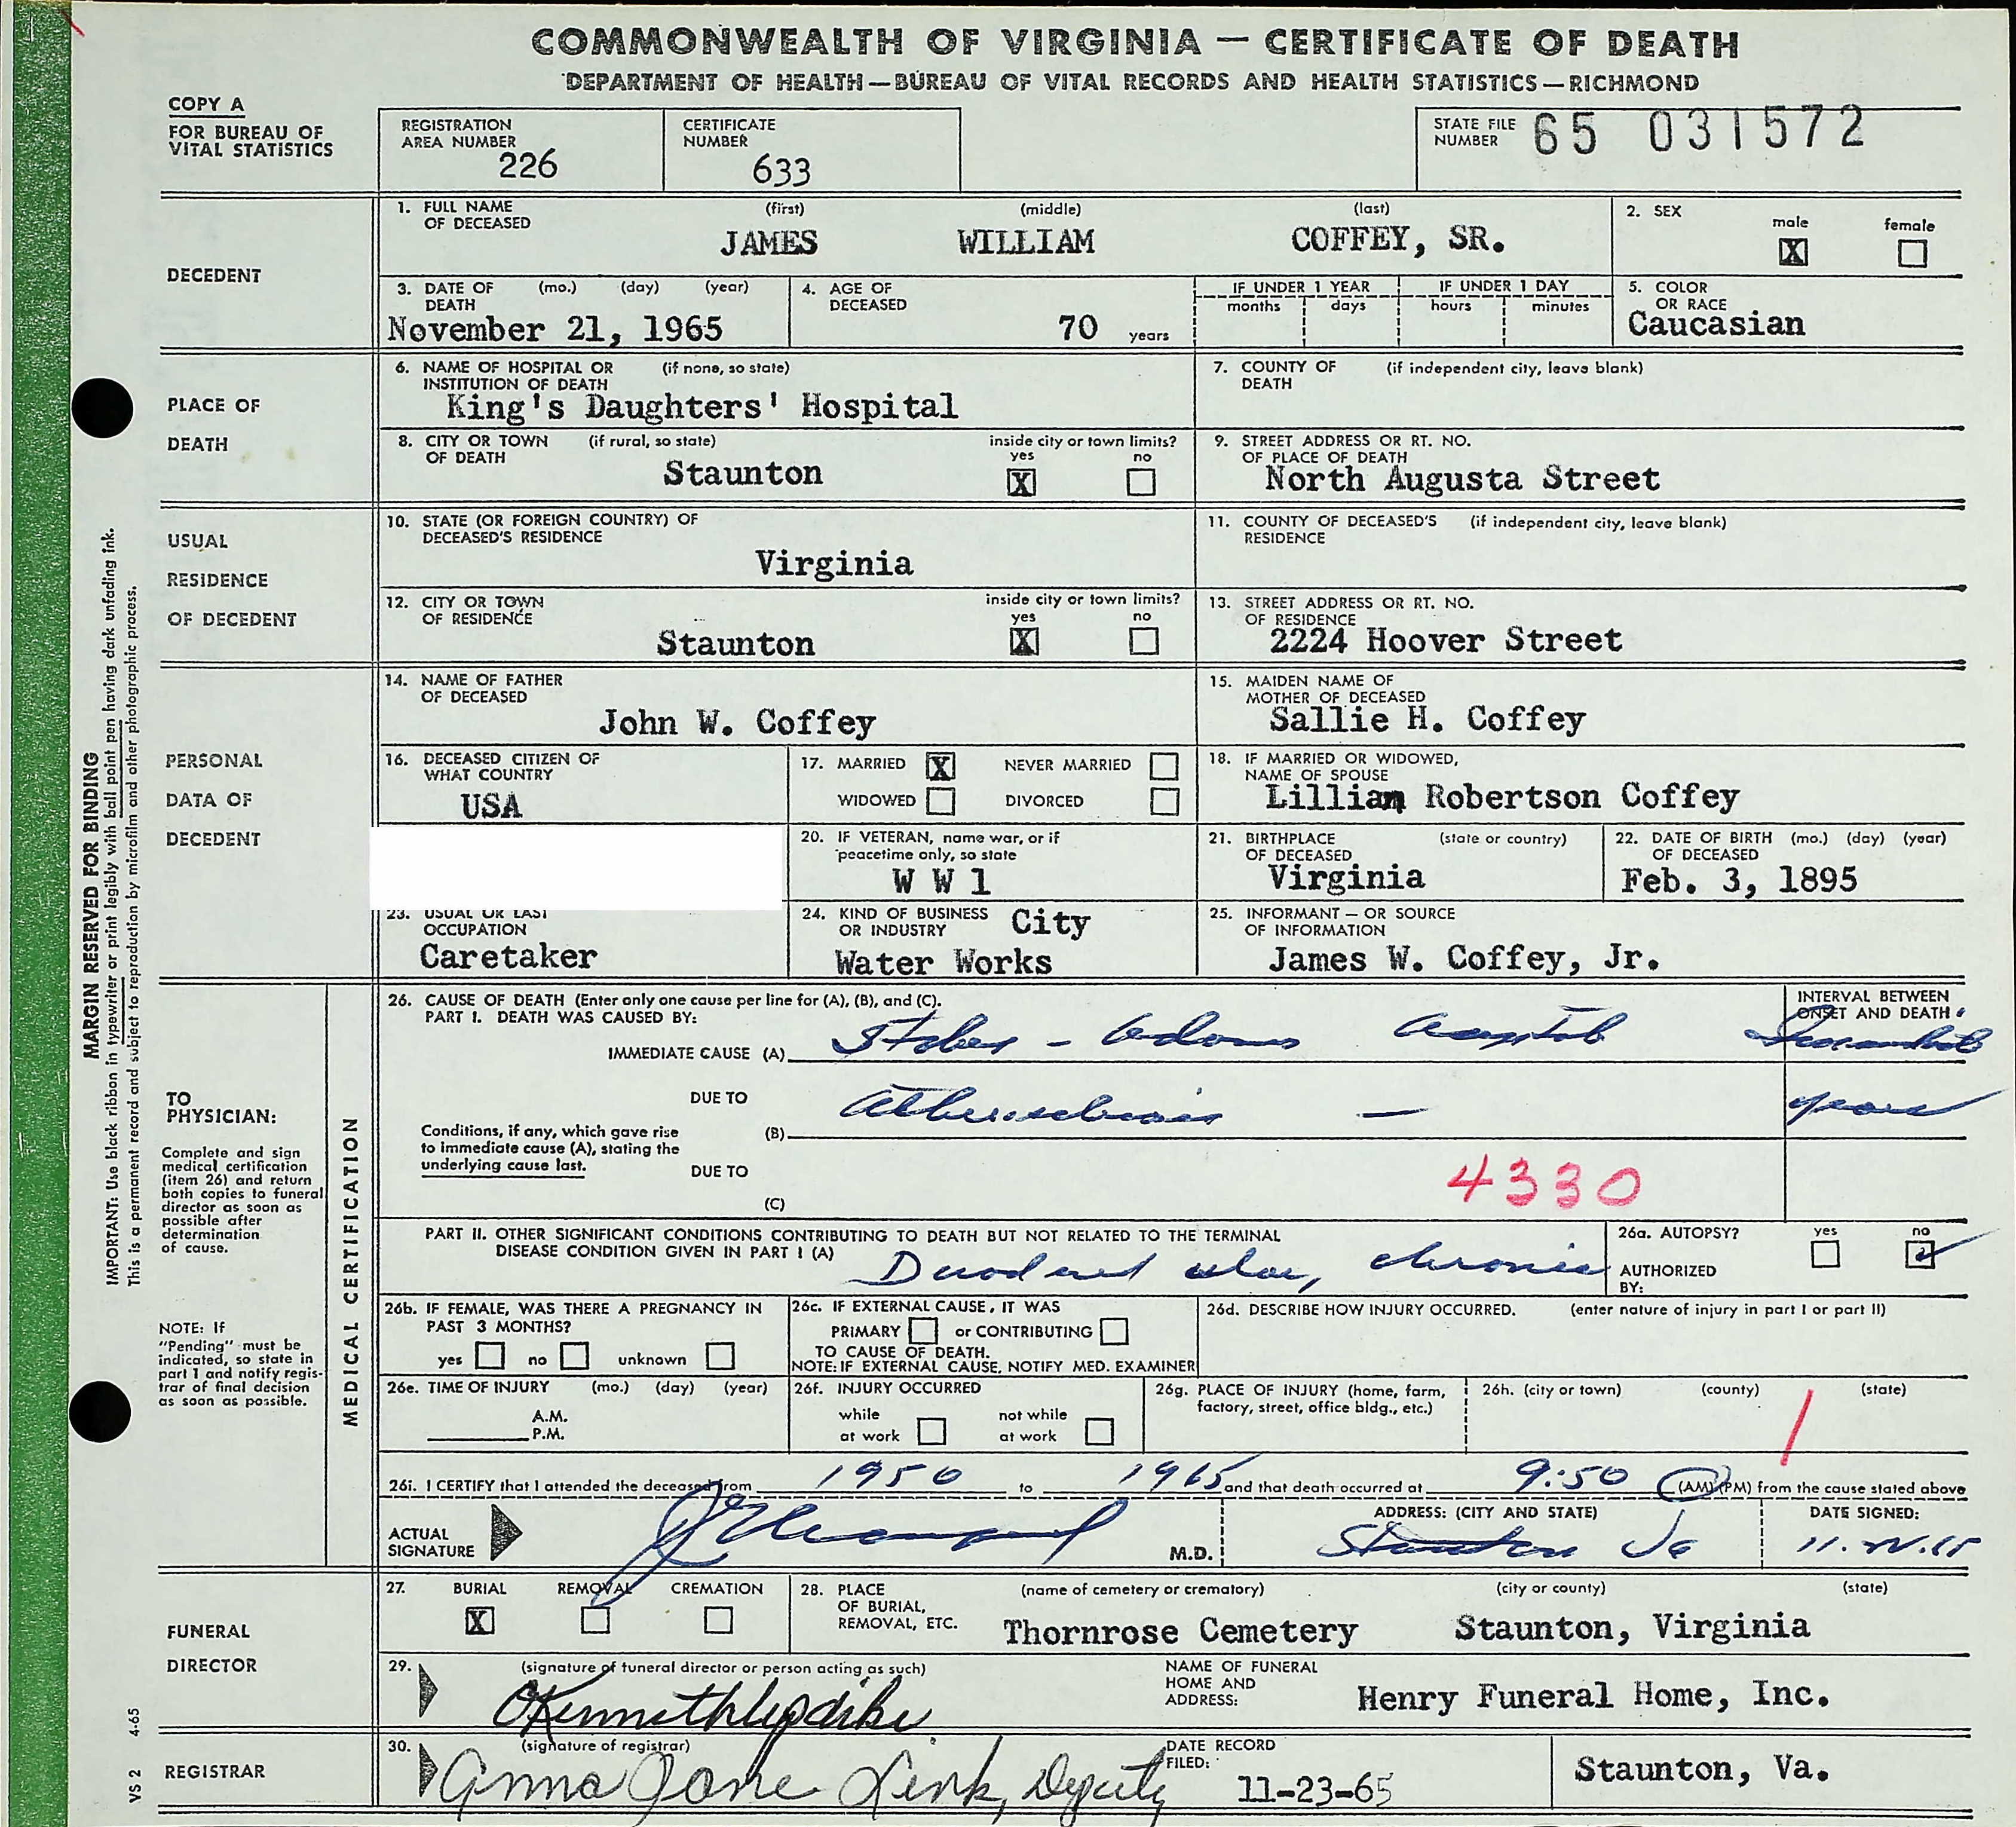 COMMONWEALTH OF VIRGINIA — CERTIFICATE OF DEATH
DEPARTMENT OF HEALTH — BUREAU OF VITAL RECORDS AND HEALTH STATISTICS — RICHMOND
COPY A
FOR BUREAU OF
VITAL STATISTICS
REGISTRATION
AREA NUMBER
226
CERTIFICATE
NUMBER
633
STATE FILE
NUMBER
65 031572
DECEDENT
1. FULL NAME
OF DECEASED
(first) (middle) (last)
JAMES WILLIAM COFFEY, SR.
2. SEX
male female
X
3. DATE OF (mo.) (day) (year)
DEATH
November 21, 1965
4. AGE OF
DECEASED
70 years
IF UNDER 1 YEAR
months days
IF UNDER 1 DAY
hours minutes
5. COLOR
OR RACE
Caucasian
PLACE OF
DEATH
6. NAME OF HOSPITAL OR (if none, so state)
INSTITUTION OF DEATH
King's Daughters' Hospital
7. COUNTY OF (if independent city, leave blank)
DEATH
8. CITY OR TOWN (if rural, so state)
OF DEATH
Staunton
inside city or town limits?
yes no
X
9. STREET ADDRESS OR RT. NO.
OF PLACE OF DEATH
North Augusta Street
USUAL
RESIDENCE
OF DECEDENT
10. STATE (OR FOREIGN COUNTRY) OF
DECEASED'S RESIDENCE
Virginia
11. COUNTY OF DECEASED'S (if independent city, leave blank)
RESIDENCE
12. CITY OR TOWN
OF RESIDENCE
Staunton
inside city or town limits?
yes no
X
13. STREET ADDRESS OR RT. NO.
OF RESIDENCE
2224 Hoover Street
PERSONAL
DATA OF
DECEDENT
14. NAME OF FATHER
OF DECEASED
John W. Coffey
15. MAIDEN NAME OF
MOTHER OF DECEASED
Sallie H. Coffey
16. DECEASED CITIZEN OF
WHAT COUNTRY
USA
17. MARRIED X NEVER MARRIED
WIDOWED DIVORCED
18. IF MARRIED OR WIDOWED,
NAME OF SPOUSE
Lillian Robertson Coffey
20. IF VETERAN, name war, or if
peacetime only, so state
W W 1
21. BIRTHPLACE (state or country)
OF DECEASED
Virginia
22. DATE OF BIRTH (mo.) (day) (year)
OF DECEASED
Feb. 3, 1895
23. USUAL OR LAST
OCCUPATION
Caretaker
24. KIND OF BUSINESS
OR INDUSTRY
City
Water Works
25. INFORMANT — OR SOURCE
OF INFORMATION
James W. Coffey, Jr.
MARGIN RESERVED FOR BINDING
IMPORTANT: Use black ribbon in typewriter or print legibly with ball point pen having dark unfading ink.
This is a permanent record and subject to reproduction by microfilm and other photographic process.
TO
PHYSICIAN:
Complete and sign
medical certification
(item 26) and return
both copies to funeral
director as soon as
possible after
determination
of cause.
NOTE: If
"Pending" must be
indicated, so state in
part 1 and notify regis-
trar of final decision
as soon as possible.
MEDICAL CERTIFICATION
26. CAUSE OF DEATH (Enter only one cause per line for (A), (B), and (C).
PART I. DEATH WAS CAUSED BY:
INTERVAL BETWEEN
ONSET AND DEATH
IMMEDIATE CAUSE (A)
Stokes - Adams
DUE TO
years
Conditions, if any, which gave rise
to immediate cause (A), stating the
underlying cause last.
(B)
DUE TO
(C)
4330
PART II. OTHER SIGNIFICANT CONDITIONS CONTRIBUTING TO DEATH BUT NOT RELATED TO THE TERMINAL
DISEASE CONDITION GIVEN IN PART I (A)
Duodenal ulcer, chronic
26a. AUTOPSY? yes no
AUTHORIZED
BY:
26b. IF FEMALE, WAS THERE A PREGNANCY IN
PAST 3 MONTHS?
yes no unknown
26c. IF EXTERNAL CAUSE, IT WAS
PRIMARY or CONTRIBUTING
TO CAUSE OF DEATH.
NOTE: IF EXTERNAL CAUSE, NOTIFY MED. EXAMINER
26d. DESCRIBE HOW INJURY OCCURRED. (enter nature of injury in part I or part II)
26e. TIME OF INJURY (mo.) (day) (year)
A.M.
P.M.
26f. INJURY OCCURRED
while not while
at work at work
26g. PLACE OF INJURY (home, farm,
factory, street, office bldg., etc.)
26h. (city or town) (county) (state)
26i. I CERTIFY that I attended the deceased from 1950 to 1965 and that death occurred at 9:50 (AM) (PM) from the cause stated above
ACTUAL
SIGNATURE
M.D.
ADDRESS: (CITY AND STATE)
Staunton Va
DATE SIGNED:
FUNERAL
DIRECTOR
27. BURIAL REMOVAL CREMATION
X
28. PLACE
OF BURIAL,
REMOVAL, ETC.
(name of cemetery or crematory) (city or county) (state)
Thornrose Cemetery Staunton, Virginia
29. (signature of funeral director or person acting as such)
NAME OF FUNERAL
HOME AND
ADDRESS:
Henry Funeral Home, Inc.
REGISTRAR
30. (signature of registrar)
Anna Jane Link, Deputy
DATE RECORD
FILED:
11-23-65
Staunton, Va.
VS 2 4-65